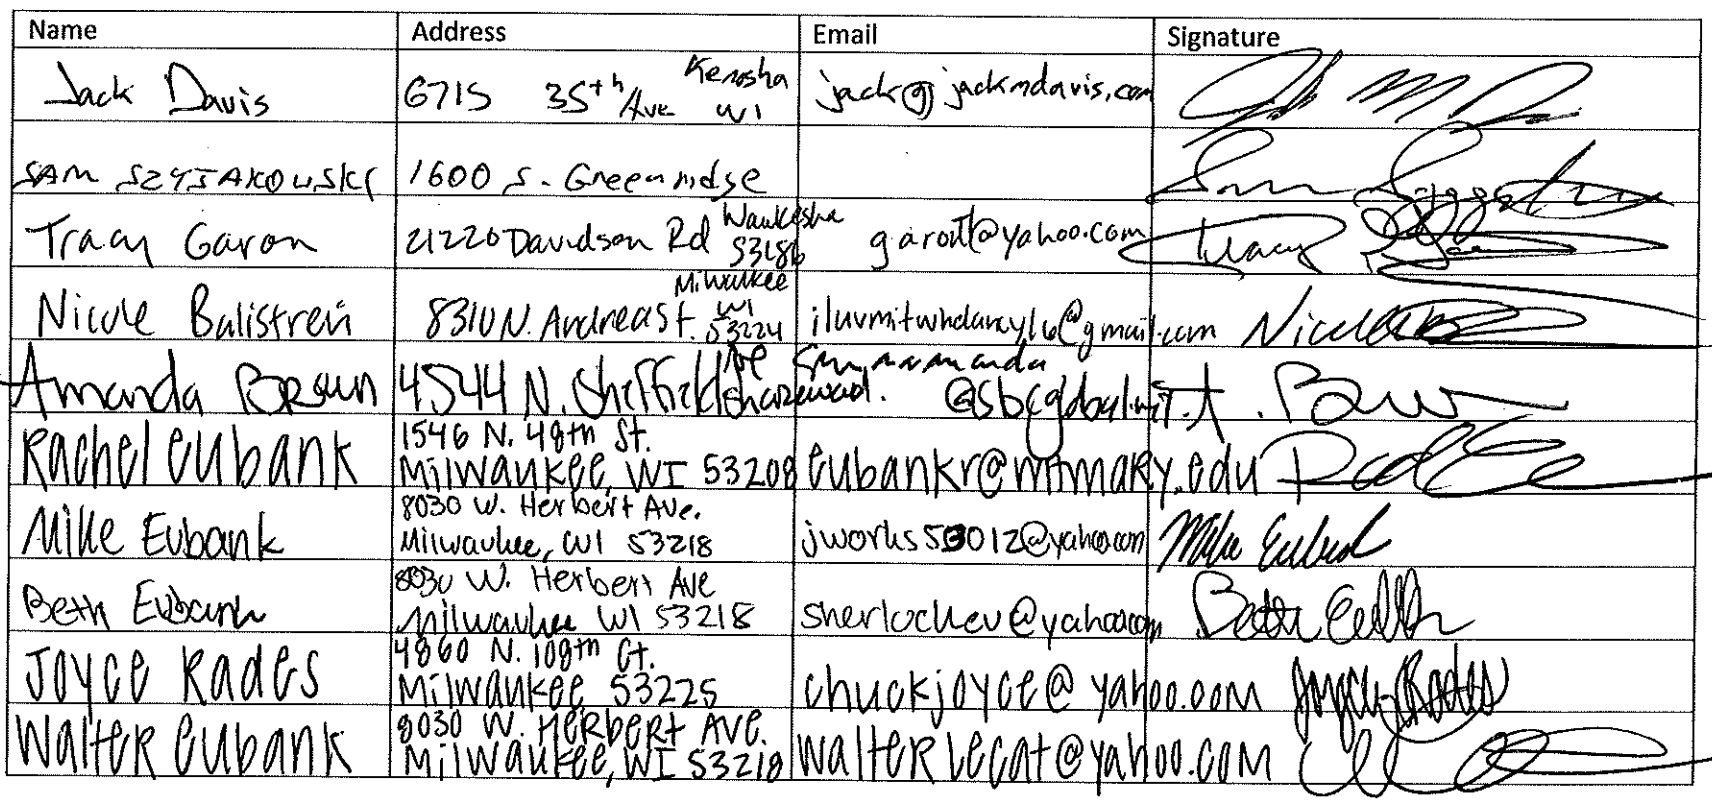 Name Address Email Signature
Jack Davis 6715 35th Ave Kenosha WI jack@jackmdavis.com
SAM SZYJAKOWSKI 1600 S. Greenridge
Tracy Garon 21220 Davidson Rd Waukesha 53186 garout@yahoo.com Tracy
Nicole Balistreri 8310 N. Andrea St. Milwaukee WI 53224 Nicole
Amanda Brown 4544 N. Sheffield Ave Shorewood. @sbcglobal.net
Rachel Eubank 1546 N. 48th St.
Milwaukee, WI 53208 eubankr@mtmary.edu
Mike Eubank 8030 W. Herbert Ave.
Milwaukee, WI 53218 jworks53012@yahoo.com Mike Eubank
Beth Eubank 8030 W. Herbert Ave
Milwaukee WI 53218 sherlockeu@yahoo.com Beth
Joyce Rades 4860 N. 108th Ct.
Milwaukee 53225 chuckjoyce@yahoo.com Joyce Rades
Walter Eubank 8030 W. Herbert Ave.
Milwaukee, WI 53218 walterlecat@yahoo.com